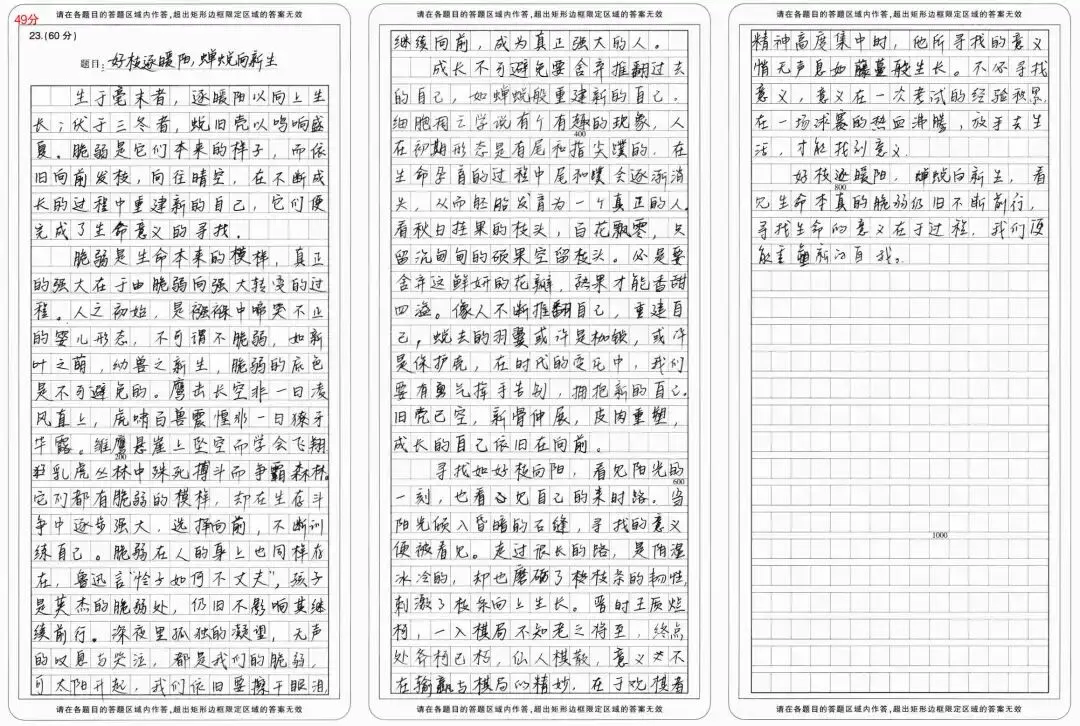 49分
请在各题目的答题区域内作答,超出矩形边框限定区域的答案无效
23.(60分)
题目：好枝逐暖阳,蝉蜕向新生
生于毫末者，逐暖阳以向上生
长；伏于三冬者，蜕旧壳以鸣响盛
夏。脆弱是它们本来的样子，而依
旧向前发枝，向往晴空，在不断成
长的过程中重建新的自己，它们便
完成了生命意义的寻找。
脆弱是生命本来的模样，真正
的强大在于由脆弱向强大转变的过
程。人之初始，是襁褓中啼哭不止
的婴儿形态，不可谓不脆弱，如新
叶之萌，幼兽之新生，脆弱的底色
是不可避免的。鹰击长空非一日凌
风直上，虎啸百兽震惶非一日獠牙
毕露。雏鹰悬崖上坠空而学会飞翔
乳虎丛林中殊死搏斗而争霸森林。
200
它们都有脆弱的模样，却在生存斗
争中逐步强大，选择向前，不断训
练自己。脆弱在人的身上也同样存
在，鲁迅言"怜子如何不丈夫"，孩子
是英杰的脆弱处，仍旧不影响其继
续前行。深夜里孤独的凝望，无声
的叹息与哭泣，都是我们的脆弱，
可太阳升起，我们依旧要擦干眼泪，
请在各题目的答题区域内作答,超出矩形边框限定区域的答案无效
请在各题目的答题区域内作答,超出矩形边框限定区域的答案无效
继续向前，成为真正强大的人。
成长不可避免要舍弃推翻过去
的自己，如蝉蜕般重建新的自己。
细胞凋亡学说有个有趣的现象，人
400
在初期形态是有尾和指尖蹼的，在
生命孕育的过程中尾和蹼会逐渐消
失，从而胚胎发育为一个真正的人。
看秋日挂果的枝头，百花飘零，只
留沉甸甸的硕果空留枝头。必是要
舍弃这鲜妍的花瓣，熟果才能香甜
四溢。像人不断推翻自己，重建自
己，蜕去的羽翼或许是枷锁，或许
是保护壳，在时代的变化中，我们
要有勇气挥手告别，拥抱新的自己。
旧壳已空，新骨伸展，皮肉重塑，
成长的自己依旧在向前。
寻找如好枝向阳，看见阳光的
600
一刻，也看见自己的来时路。当
阳光倾入昏暗的石缝，寻找的意义
便被看见。走过很长的路，是阴湿
冰冷的，却也磨砺了枝条的韧性，
刺激了枝条向上生长。晋时王质烂
柯，一入棋局不知老之将至，终点
处斧柯已朽，仙人棋散，意义不
在输赢与棋局的精妙，在于观棋者
请在各题目的答题区域内作答,超出矩形边框限定区域的答案无效
请在各题目的答题区域内作答,超出矩形边框限定区域的答案无效
精神高度集中时，他所寻找的意义
悄无声息如藤蔓般生长。不必寻找
意义，意义在一次考试的经验积累，
在一场球赛的热血沸腾，放手去生
活，才能找到意义。
好枝逐暖阳，蝉蜕向新生，看
800
见生命本真的脆弱仍旧不断前行，
寻找生命的意义在于过程，我们便
能重塑新的自我。
1000
请在各题目的答题区域内作答,超出矩形边框限定区域的答案无效